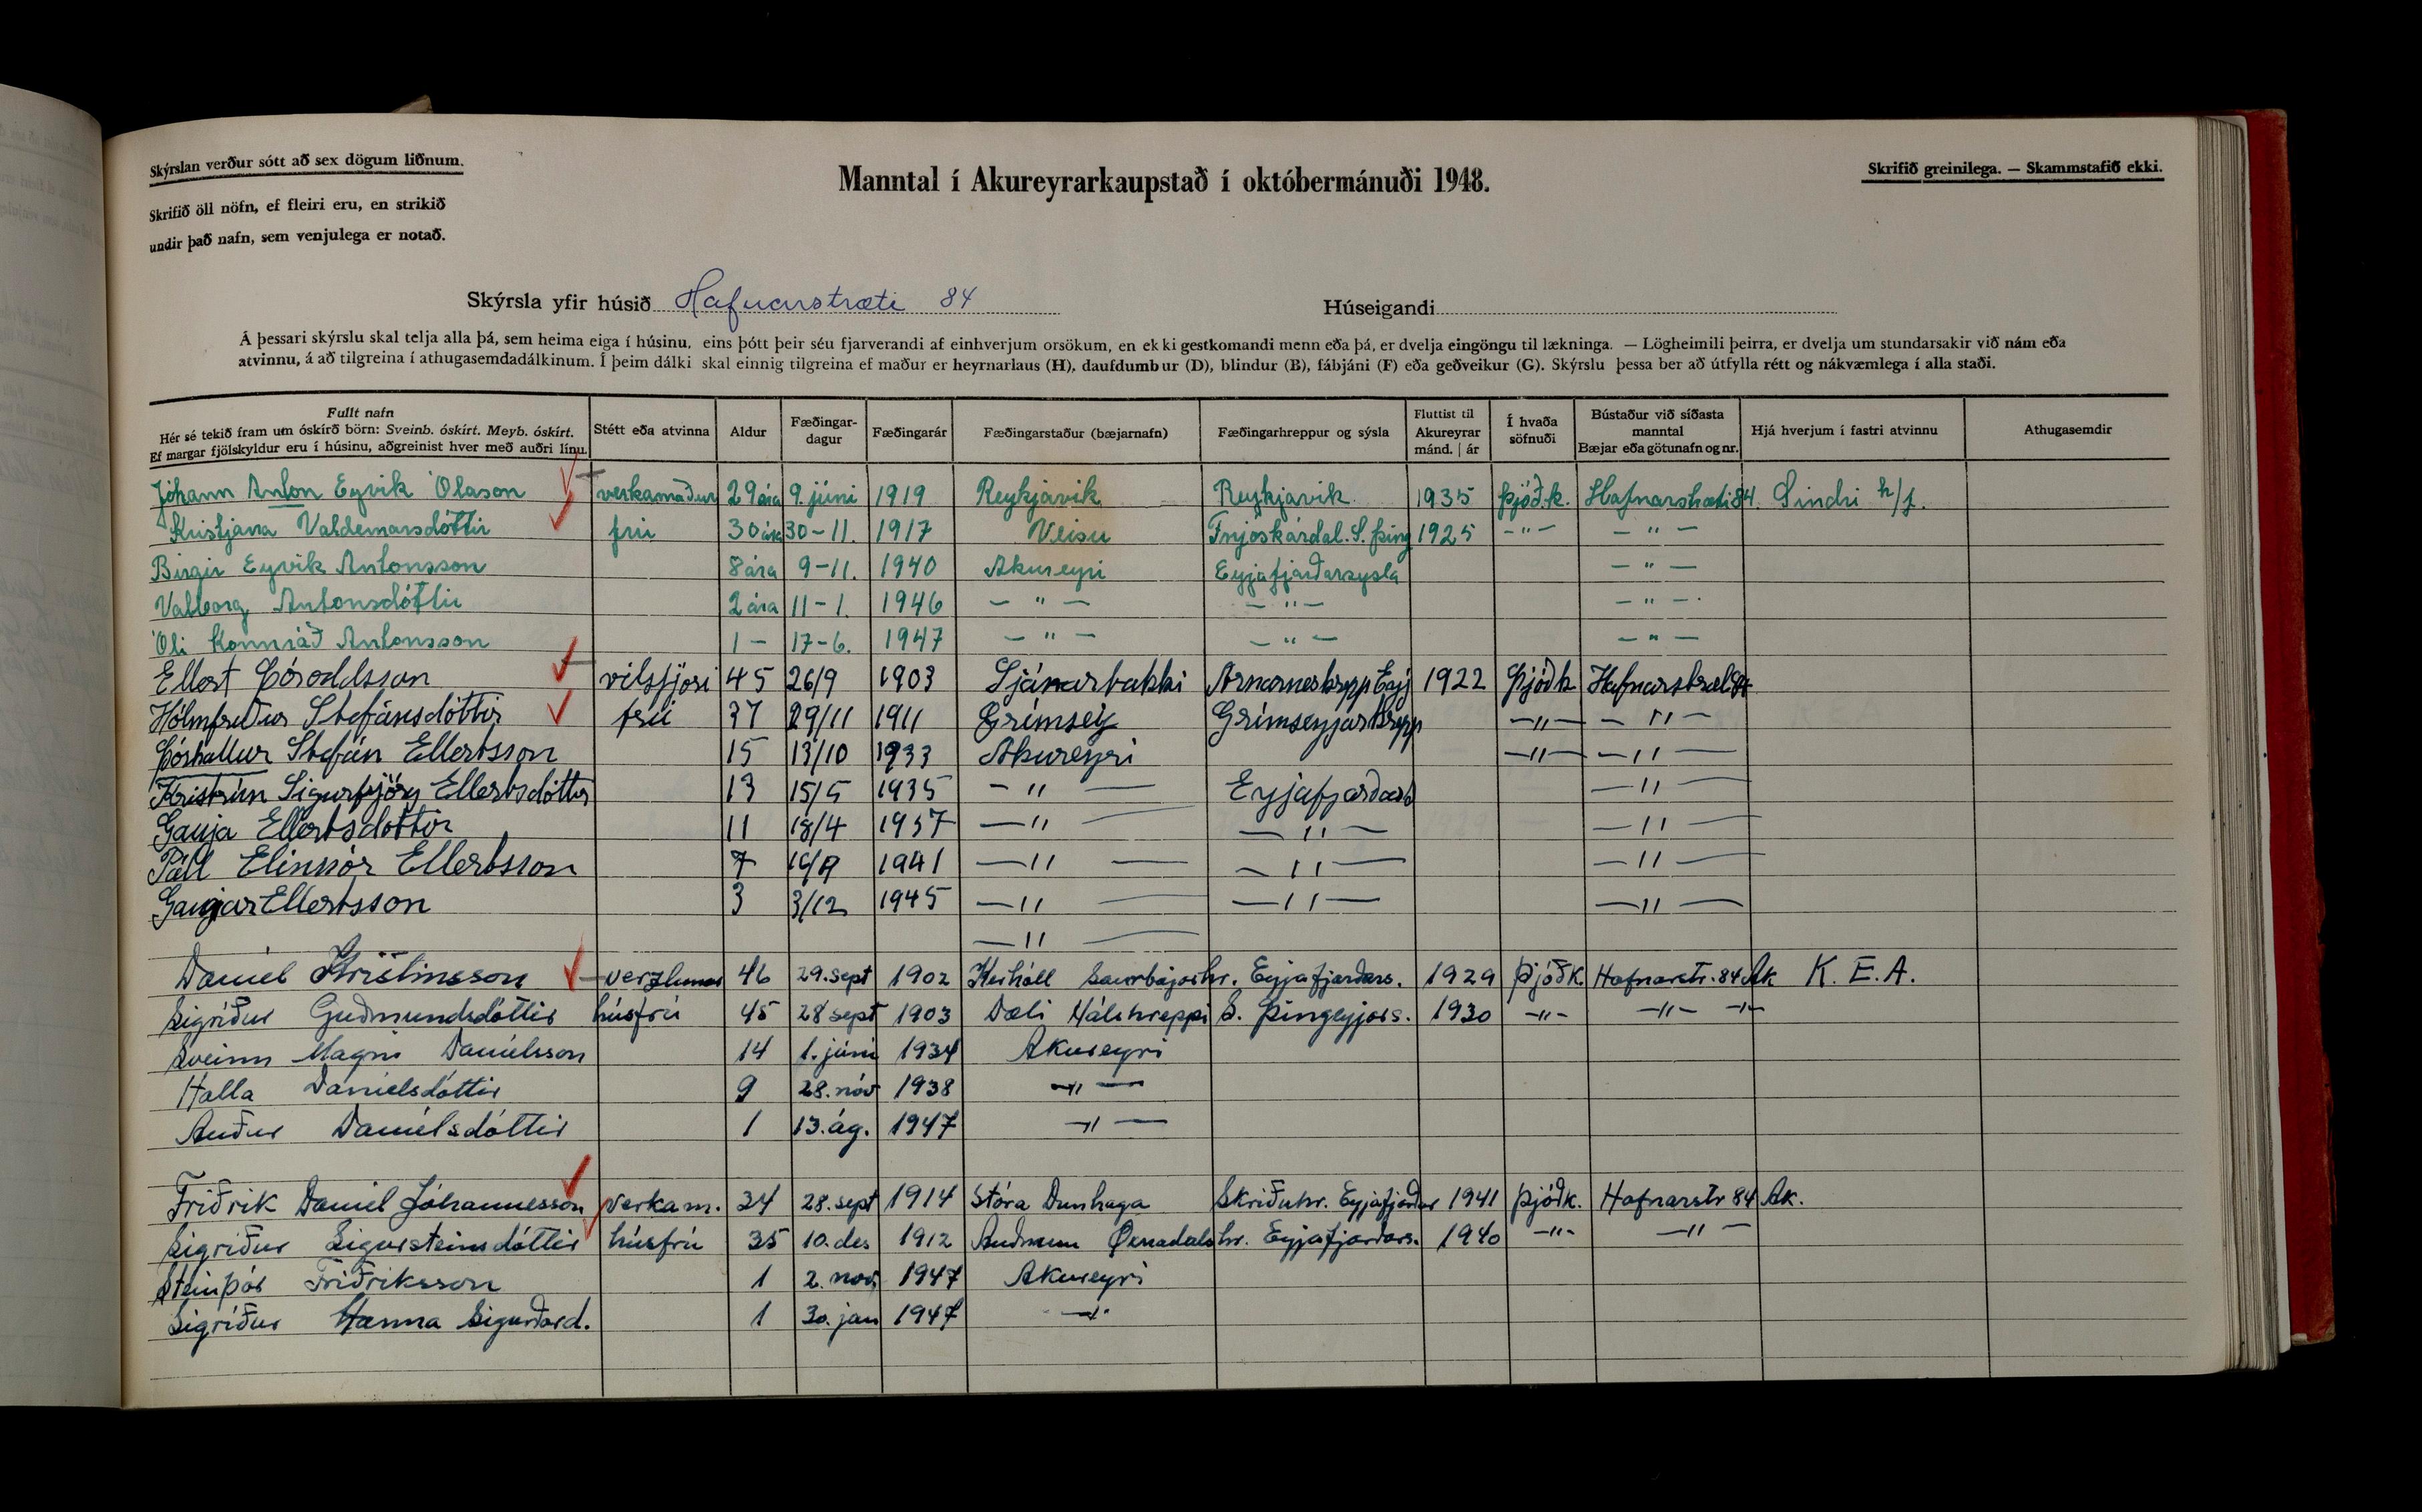 Skýrslan verður sótt að sex dögum liðnum.
Skrifið öll nöfn, ef fleiri eru, en strikið
undir það nafn, sem venjulega er notað.
Manntal í Akureyrarkaupstað í októbermánuði 1948.
Skrifið greinilega. — Skammstafið ekki.
Skýrsla yfir húsið Hafnarstræti 84 Húseigandi
Á þessari skýrslu skal telja alla þá, sem heima eiga í húsinu, eins þótt þeir séu fjarverandi af einhverjum orsökum, en ekki gestkomandi menn eða þá, er dvelja eingöngu til lækninga. — Lögheimili þeirra, er dvelja um stundarsakir við nám eða
atvinnu, á að tilgreina í athugasemdadálkinum. Í þeim dálki skal einnig tilgreina ef maður er heyrnarlaus (H), daufdumbur (D), blindur (B), fábjáni (F) eða geðveikur (G). Skýrslu þessa ber að útfylla rétt og nákvæmlega í alla staði.
Fullt nafn
Hér sé tekið fram um óskírð börn: Sveinb. óskírt. Meyb. óskírt.
Ef margar fjölskyldur eru í húsinu, aðgreinist hver með auðri línu.
Stétt eða atvinna
Aldur
Fæðingar-
dagur
Fæðingarár
Fæðingarstaður (bæjarnafn)
Fæðingarhreppur og sýsla
Fluttist til
Akureyrar
mánd. | ár
Í hvaða
söfnuði
Bústaður við síðasta
manntal
Bæjar eða götunafn og nr.
Hjá hverjum í fastri atvinnu
Athugasemdir
Jóhann Anton Eyvik Ólason verkamaður 29 ára 9. júni 1919 Reykjavik Reykjavik 1935 Þjóð.k. Hafnarstræti 84. Sindri h/f.
Kristjana Valdemarsdóttir frú 30 ára 30-11. 1917 Veisu Fnjóskárdal. S. Þing 1925 -"- -"-
Birgir Eyvik Antonsson 8 ára 9-11. 1940 Akureyri Eyjafjarðarsysla -"-
Valborg Antonsdóttir 2 ára 11-1. 1946 -"- -"- -"-
Óli Konnráð Antonsson 1 - 17-6. 1947 -"- -"- -"-
Ellert Þóroddsson vélstjóri 45 26/9 1903 Sjánarbakki Arnarneshrepp Eyj 1922 Þjóðk Hafnarstræt 84
Hólmfreður Stefánsdóttir frú 37 29/11 1911 Grímsey Grímseyjarhrepp -"- -"-
Þórhallur Stefán Ellertsson 15 13/10 1933 Akureyri -"- -"-
Kristrún Sigurbjörg Ellertsdóttir 13 15/5 1935 -"- Eyjafjarðars -"-
Gauja Ellertsdóttir 11 18/4 1937 -"- -"- -"-
Páll Elinþór Ellertsson 7 1941 -"- -"- -"-
Ellertsson 3 3/12 1945 -"- -"- -"-
-"-
Daníel Kristinsson verzlunar 46 29. sept 1902 Kerhóll Saurbæjarhr. Eyjafjarðars. 1929 Þjóðk. Hafnarstr. 84 Ak K. E. A.
Sigríður Guðmundsdóttir húsfrú 45 28 sept 1903 Dæli Hálshreppi S. Þingeyjars. 1930 -"- -"- -"-
Sveinn Magni Daníelsson 14 1. júni 1934 Akureyri
Halla Daníelsdóttir 9 28. nóv 1938 -"-
Auður Daníelsdóttir 1 13. ág. 1947 -"-
Friðrik Daníel Jóhannesson verkam. 34 28. sept 1914 Stóra Dunhaga Skriðuhr. Eyjafjarðar 1941 Þjóðk. Hafnarstr 84 Ak.
Sigríður Sigursteinsdóttir húsfrú 35 10. des 1912 Auðnum Öxnadalshr. Eyjafjarðars. 1940 -"- -"-
Steinþór Friðriksson 1 2. nov. 1947 Akureyri
Sigríður Hanna Sigurðard. 1 30. jan 1947 -"-